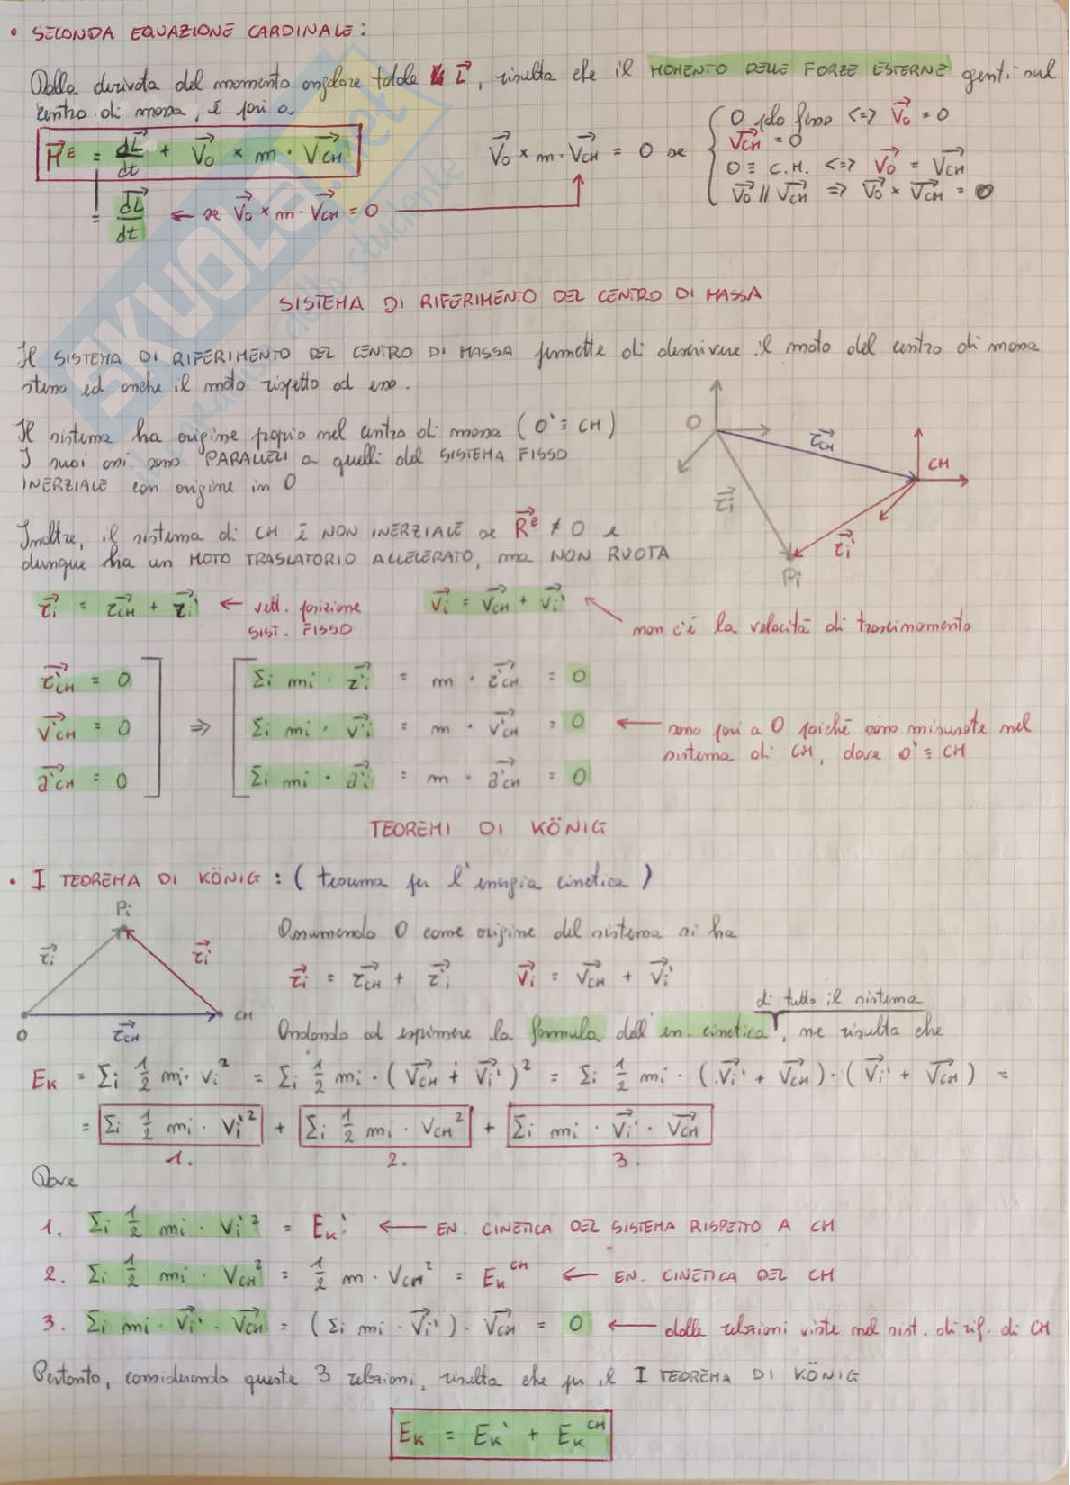 • SECONDA EQUAZIONE CARDINALE:
Dalla derivata del momento angolare totale L⃗, risulta che il MOMENTO DELLE FORZE ESTERNE agenti sul
centro di massa, è pari a
M⃗ᴱ = dL⃗/dt + V⃗o × m · V⃗CM
= dL⃗/dt ← se V⃗o × m · V⃗CM = 0
V⃗o × m · V⃗CM = 0 se
O polo fisso <=> V⃗o = 0
V⃗CM = 0
O ≡ C.M. <=> V⃗o = V⃗CM
V⃗o // V⃗CM => V⃗o × V⃗CM = 0
SKUOLA.net
SISTEMA DI RIFERIMENTO DEL CENTRO DI MASSA
Il SISTEMA DI RIFERIMENTO DEL CENTRO DI MASSA permette di descrivere il moto del centro di massa
stesso ed anche il moto rispetto ad esso.
Il sistema ha origine proprio nel centro di massa (O' ≡ CM)
I suoi assi sono PARALLELI a quelli del SISTEMA FISSO
INERZIALE con origine in O
Inoltre, il sistema di CM è NON INERZIALE se R⃗ᵉ ≠ 0 e
dunque ha un MOTO TRASLATORIO ACCELERATO, ma NON RUOTA
O
r⃗CM
CM
r⃗i
r⃗i'
Pi
r⃗i = r⃗CM + r⃗i' ← vett. posizione
SIST. FISSO
v⃗i = v⃗CM + v⃗i'
non c'è la velocità di trascinamento
r⃗'CM = 0
v⃗'CM = 0
a⃗'CM = 0
=>
Σi mi · r⃗i' = m · r⃗'CM = 0
Σi mi · v⃗i' = m · v⃗'CM = 0
Σi mi · a⃗i' = m · a⃗'CM = 0
← sono pari a 0 poiché sono misurate nel
sistema di CM, dove O' ≡ CM
TEOREMI DI KÖNIG
• I TEOREMA DI KÖNIG: (teorema per l'energia cinetica)
Pi
r⃗i
r⃗i'
O
r⃗CM
CM
Assumendo O come origine del sistema si ha
r⃗i = r⃗CM + r⃗i' V⃗i = V⃗CM + V⃗i'
di tutto il sistema
Andando ad esprimere la formula dell'en. cinetica, ne risulta che
EK = Σi 1/2 mi · Vi² = Σi 1/2 mi · (V⃗CM + V⃗i')² = Σi 1/2 mi · (V⃗i' + V⃗CM) · (V⃗i' + V⃗CM) =
= Σi 1/2 mi · Vi'² + Σi 1/2 mi · VCM² + Σi mi · V⃗i' · V⃗CM
1. 2. 3.
Dove
1. Σi 1/2 mi · Vi'² = EK' ← EN. CINETICA DEL SISTEMA RISPETTO A CM
2. Σi 1/2 mi · VCM² = 1/2 m · VCM² = EKᶜᴹ ← EN. CINETICA DEL CM
3. Σi mi · V⃗i' · V⃗CM = (Σi mi · V⃗i') · V⃗CM = 0 ← dalle relazioni viste nel sist. di rif. di CM
Pertanto, considerando queste 3 relazioni, risulta che per il I TEOREMA DI KÖNIG
EK = EK' + EKᶜᴹ